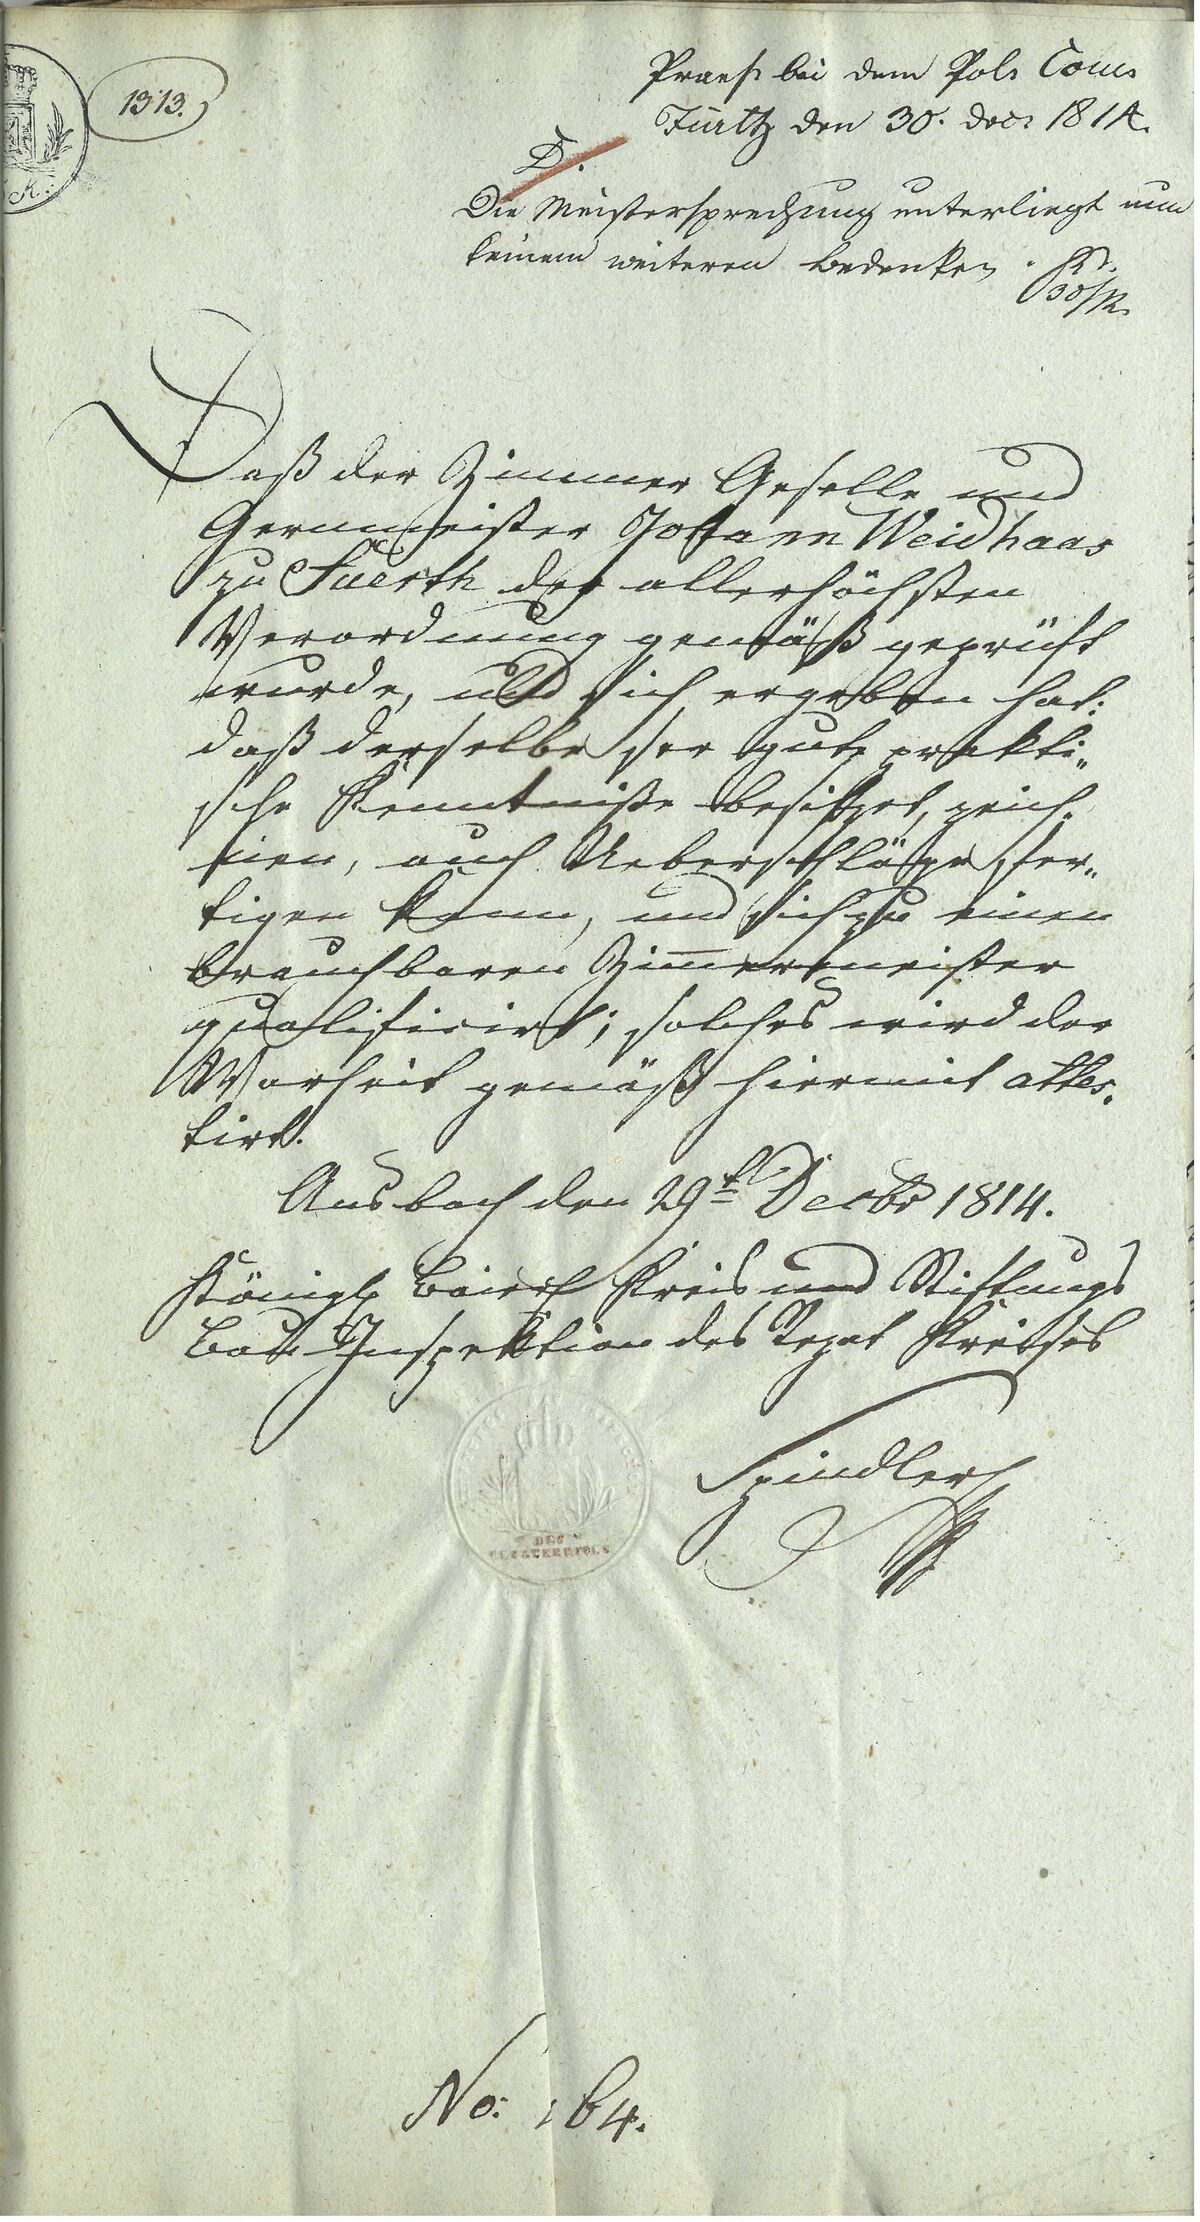 1313.
Praes. bei dem Pol. Com.
Fürth den 30. Dec. 1814.
D.
Die Meistersprechung unterliegt nun
keinem weiteren Bedenken.
30/12.
Daß der Zimmer Geselle und
Germeister Johann Weidhaas
zu Fuerth der allerhöchsten
Verordnung gemäß geprüft
wurde, und sich ergeben hat:
daß derselbe ser gute prakti„
sche Kenntniße besitzet, zeich„
nen, auch Ueberschläge fer„
tigen kann, und sich zu einen
brauchbaren Zimmermeister
qualificirt; solches wird der
Warheit gemäß hiermit attes„
tirt.
Ansbach den 29t Decbr 1814.
Königl. Baier. Kreis und Stiftungs
Bau Inspektion des Rezat Kreises
Spindler
DES
No: 164.